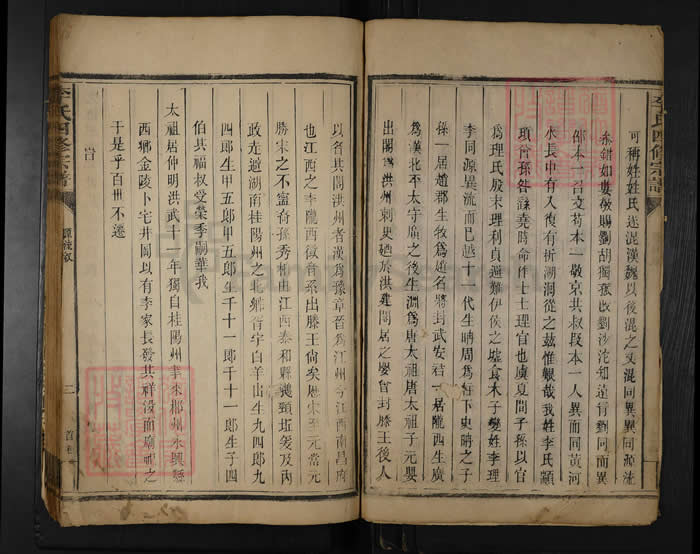 可稱姓姓氏迷混漢魏以後混之又混同異異同源流
參錯如婁敬賜劉胡獨孤改劉沙沱知遠冐劉同而異
邵本一召文苟本一敬京共叔段本一人異而同黃河
水長中有入復有析湖洞從之茲惟艱哉我姓李氏顓
頊曾孫咎繇堯時命作士士理官也虞夏間子孫以官
為理氏殷末理利貞避難伊侯之墟食木子變姓李理
李同源異流而已越十一代生晴周為柱下史聃之子
孫一居趙郡生牧為趙名將封武安君一居隴西生廣
為漢北平太守廣之後生淵為唐太祖唐太宗子元嬰
出閣為洪州刺史廼於洪建閣居之嬰曾封滕王後人
以名其閣洪州者漢為豫章晉為江州今江西南昌府
也江西之李隴西徵音系出滕王尚矣歷宋至元常元
勝宋之不寧裔孫秀湘由江西泰和縣鵝頸坵爰及丙
政走避湖南桂陽州之北鄉胥宇白羊出生九四郎九
四郎生甲五郎甲五郎生千十一郎千十一郎生子四
伯共福叔受榮季嗣華我
太祖居仲明洪武十一年獨自桂陽州來郴州永興縣
西鄉金陵卜宅井圖以有李家長發其祥沒而廟祀之
于是乎百世不遷
李氏四修宗譜
源流叙
三
首卷
李氏四修宗譜